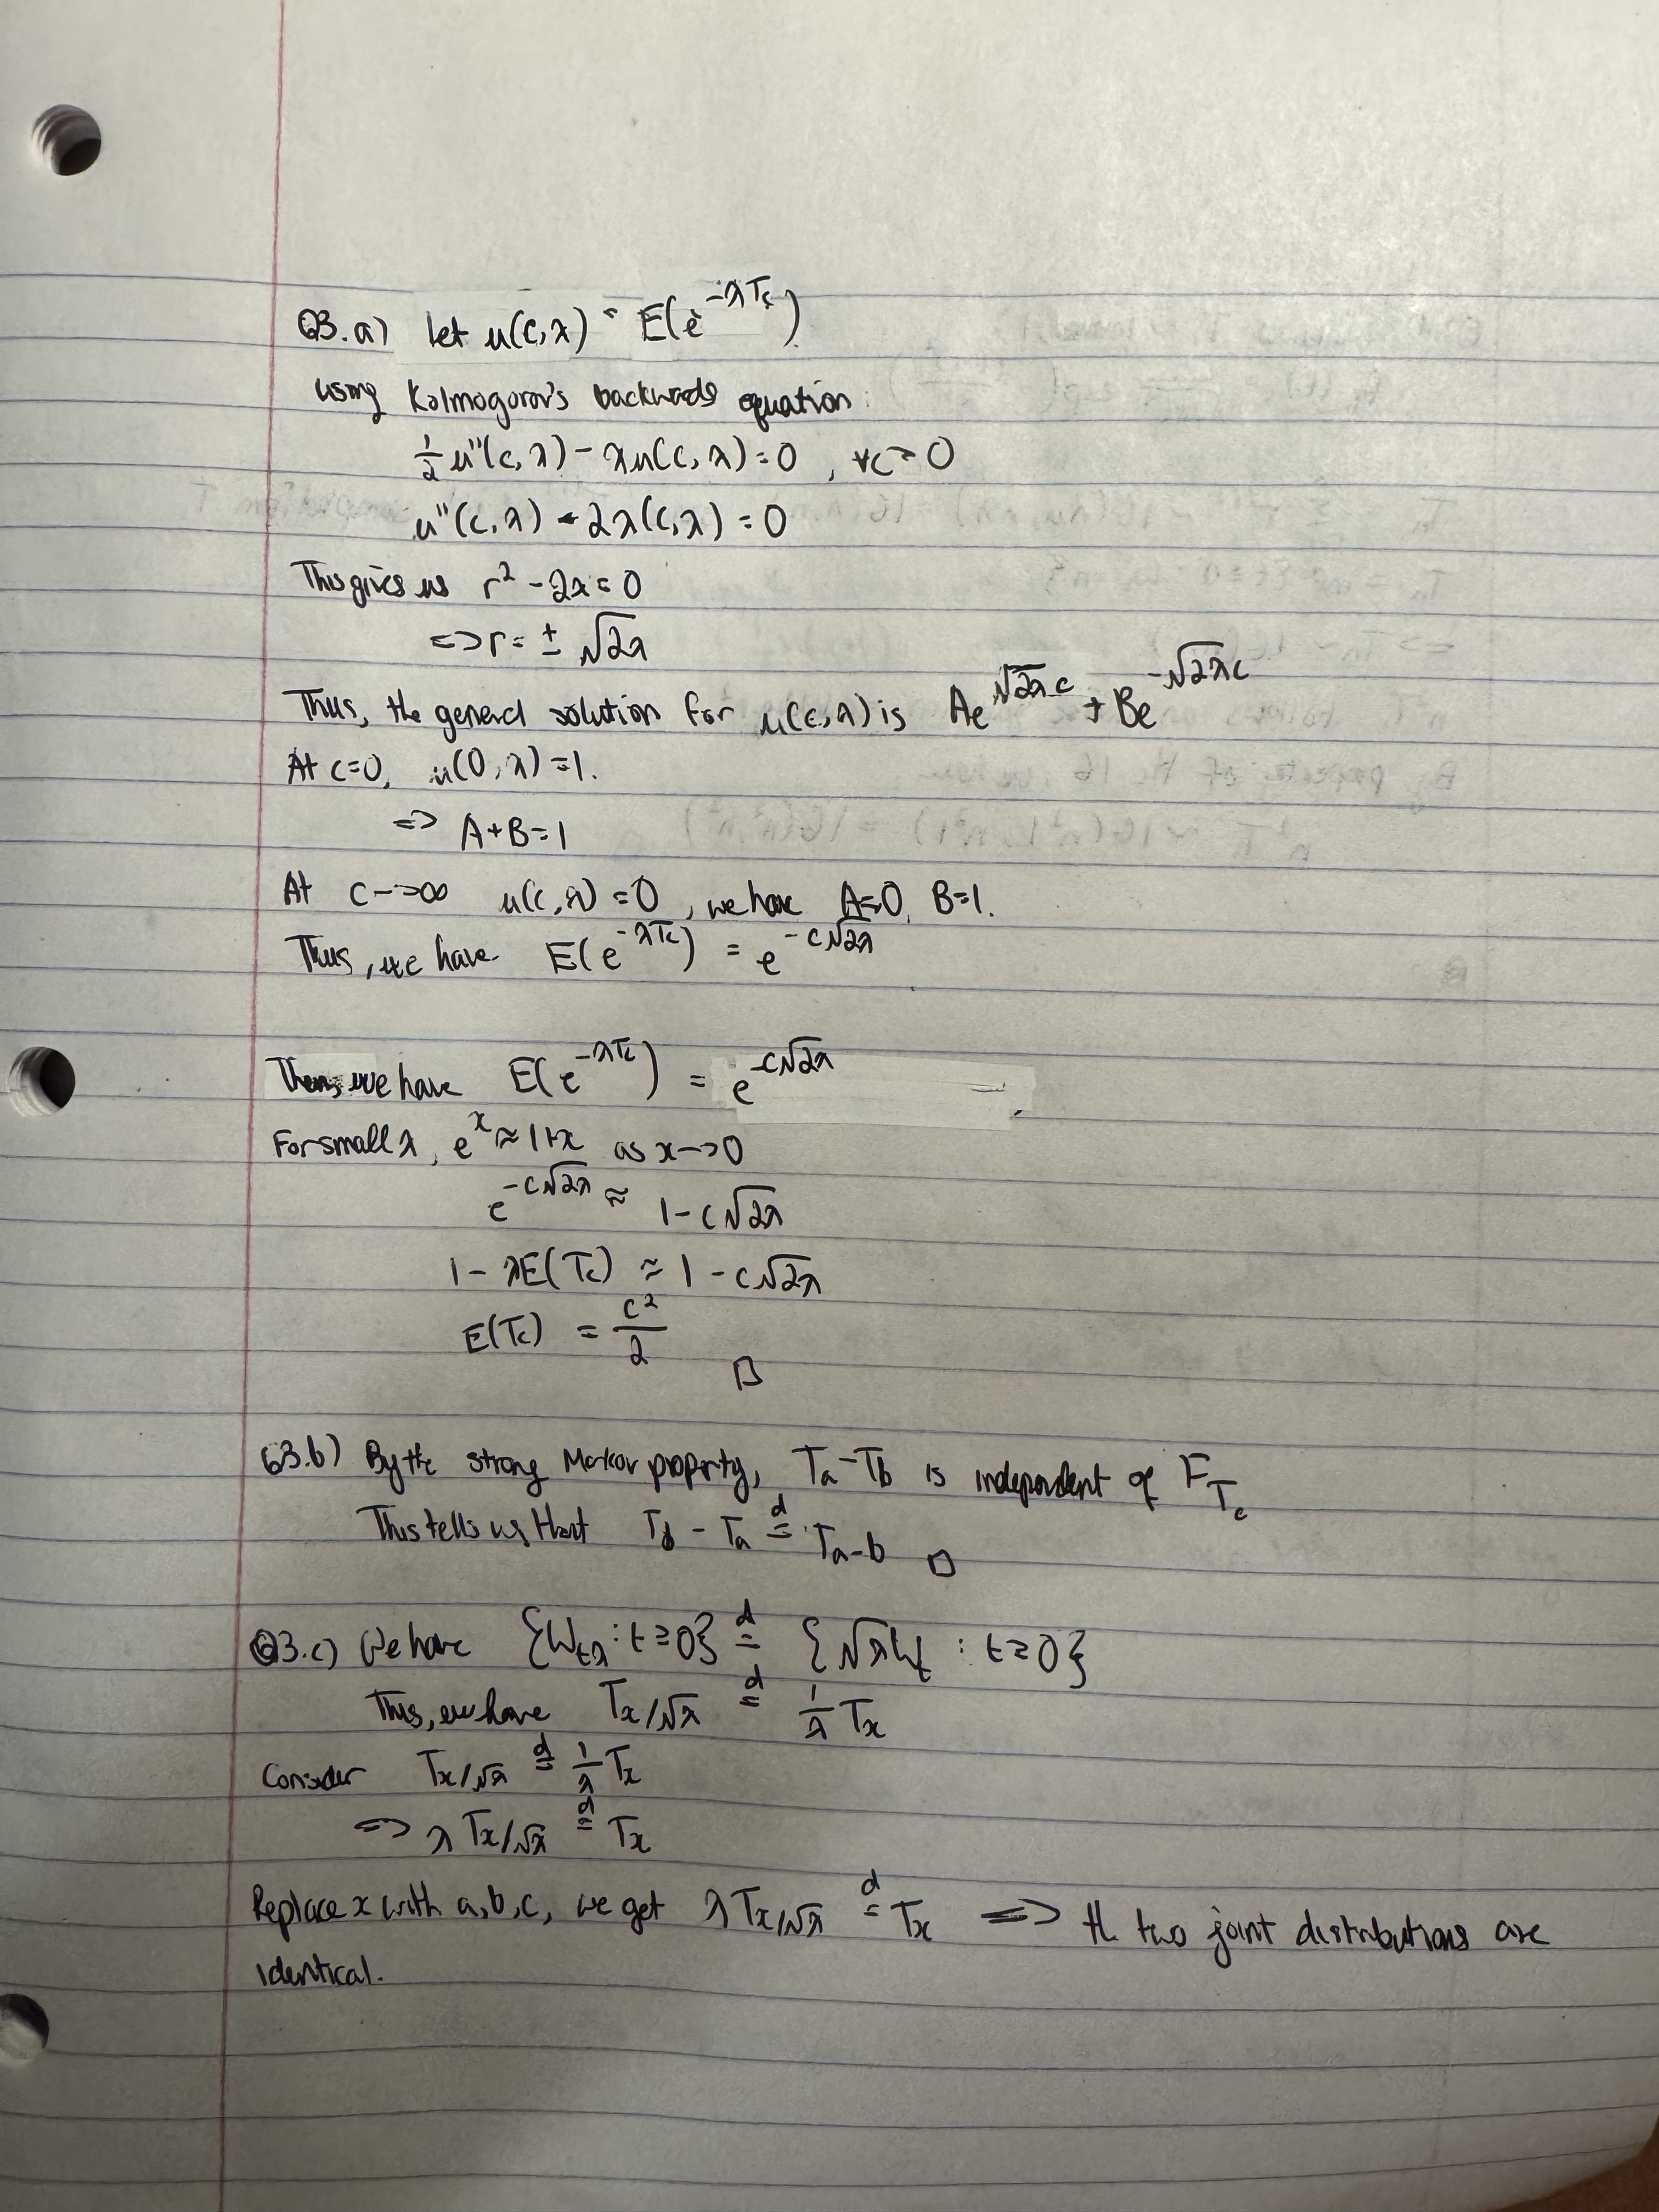 Q3. a) let u(c,λ) = E(e^{-λT_c})
using Kolmogorov's backwards equation:
1/2 u''(c,λ) - λu(c,λ) = 0 , ∀c>0
u''(c,λ) - 2λ(c,λ) = 0
This gives us r² - 2λ = 0
=> r = ± √2λ
Thus, the general solution for u(c,λ) is Ae^{√2λ c} + Be^{-√2λ c}
At c=0, u(0,λ) = 1.
=> A+B=1
At c->∞ u(c,λ) = 0 , we have A=0, B=1.
Thus, we have E(e^{-λT_c}) = e^{-c√2λ}
Then, we have E(e^{-λT_c}) = e^{-c√2λ}
For small λ, e^x ≈ 1+x as x->0
e^{-c√2λ} ≈ 1-c√2λ
1 - λE(T_c) ≈ 1 - c√2λ
E(T_c) = c²/2 □
Q3.b) By the strong Markov property, T_a - T_b is independent of F_{T_c}
This tells us that T_b - T_a =^d T_{a-b} □
Q3.c) We have {W_{tλ} : t≥0} =^d {√λW_t : t≥0}
Thus, we have T_{x/√λ} =^d 1/λ T_x
Consider T_{x/√λ} =^d 1/λ T_x
=> λ T_{x/√λ} =^d T_x
Replace x with a,b,c, we get λ T_{x/√λ} =^d T_x => th two joint distributions are
identical.